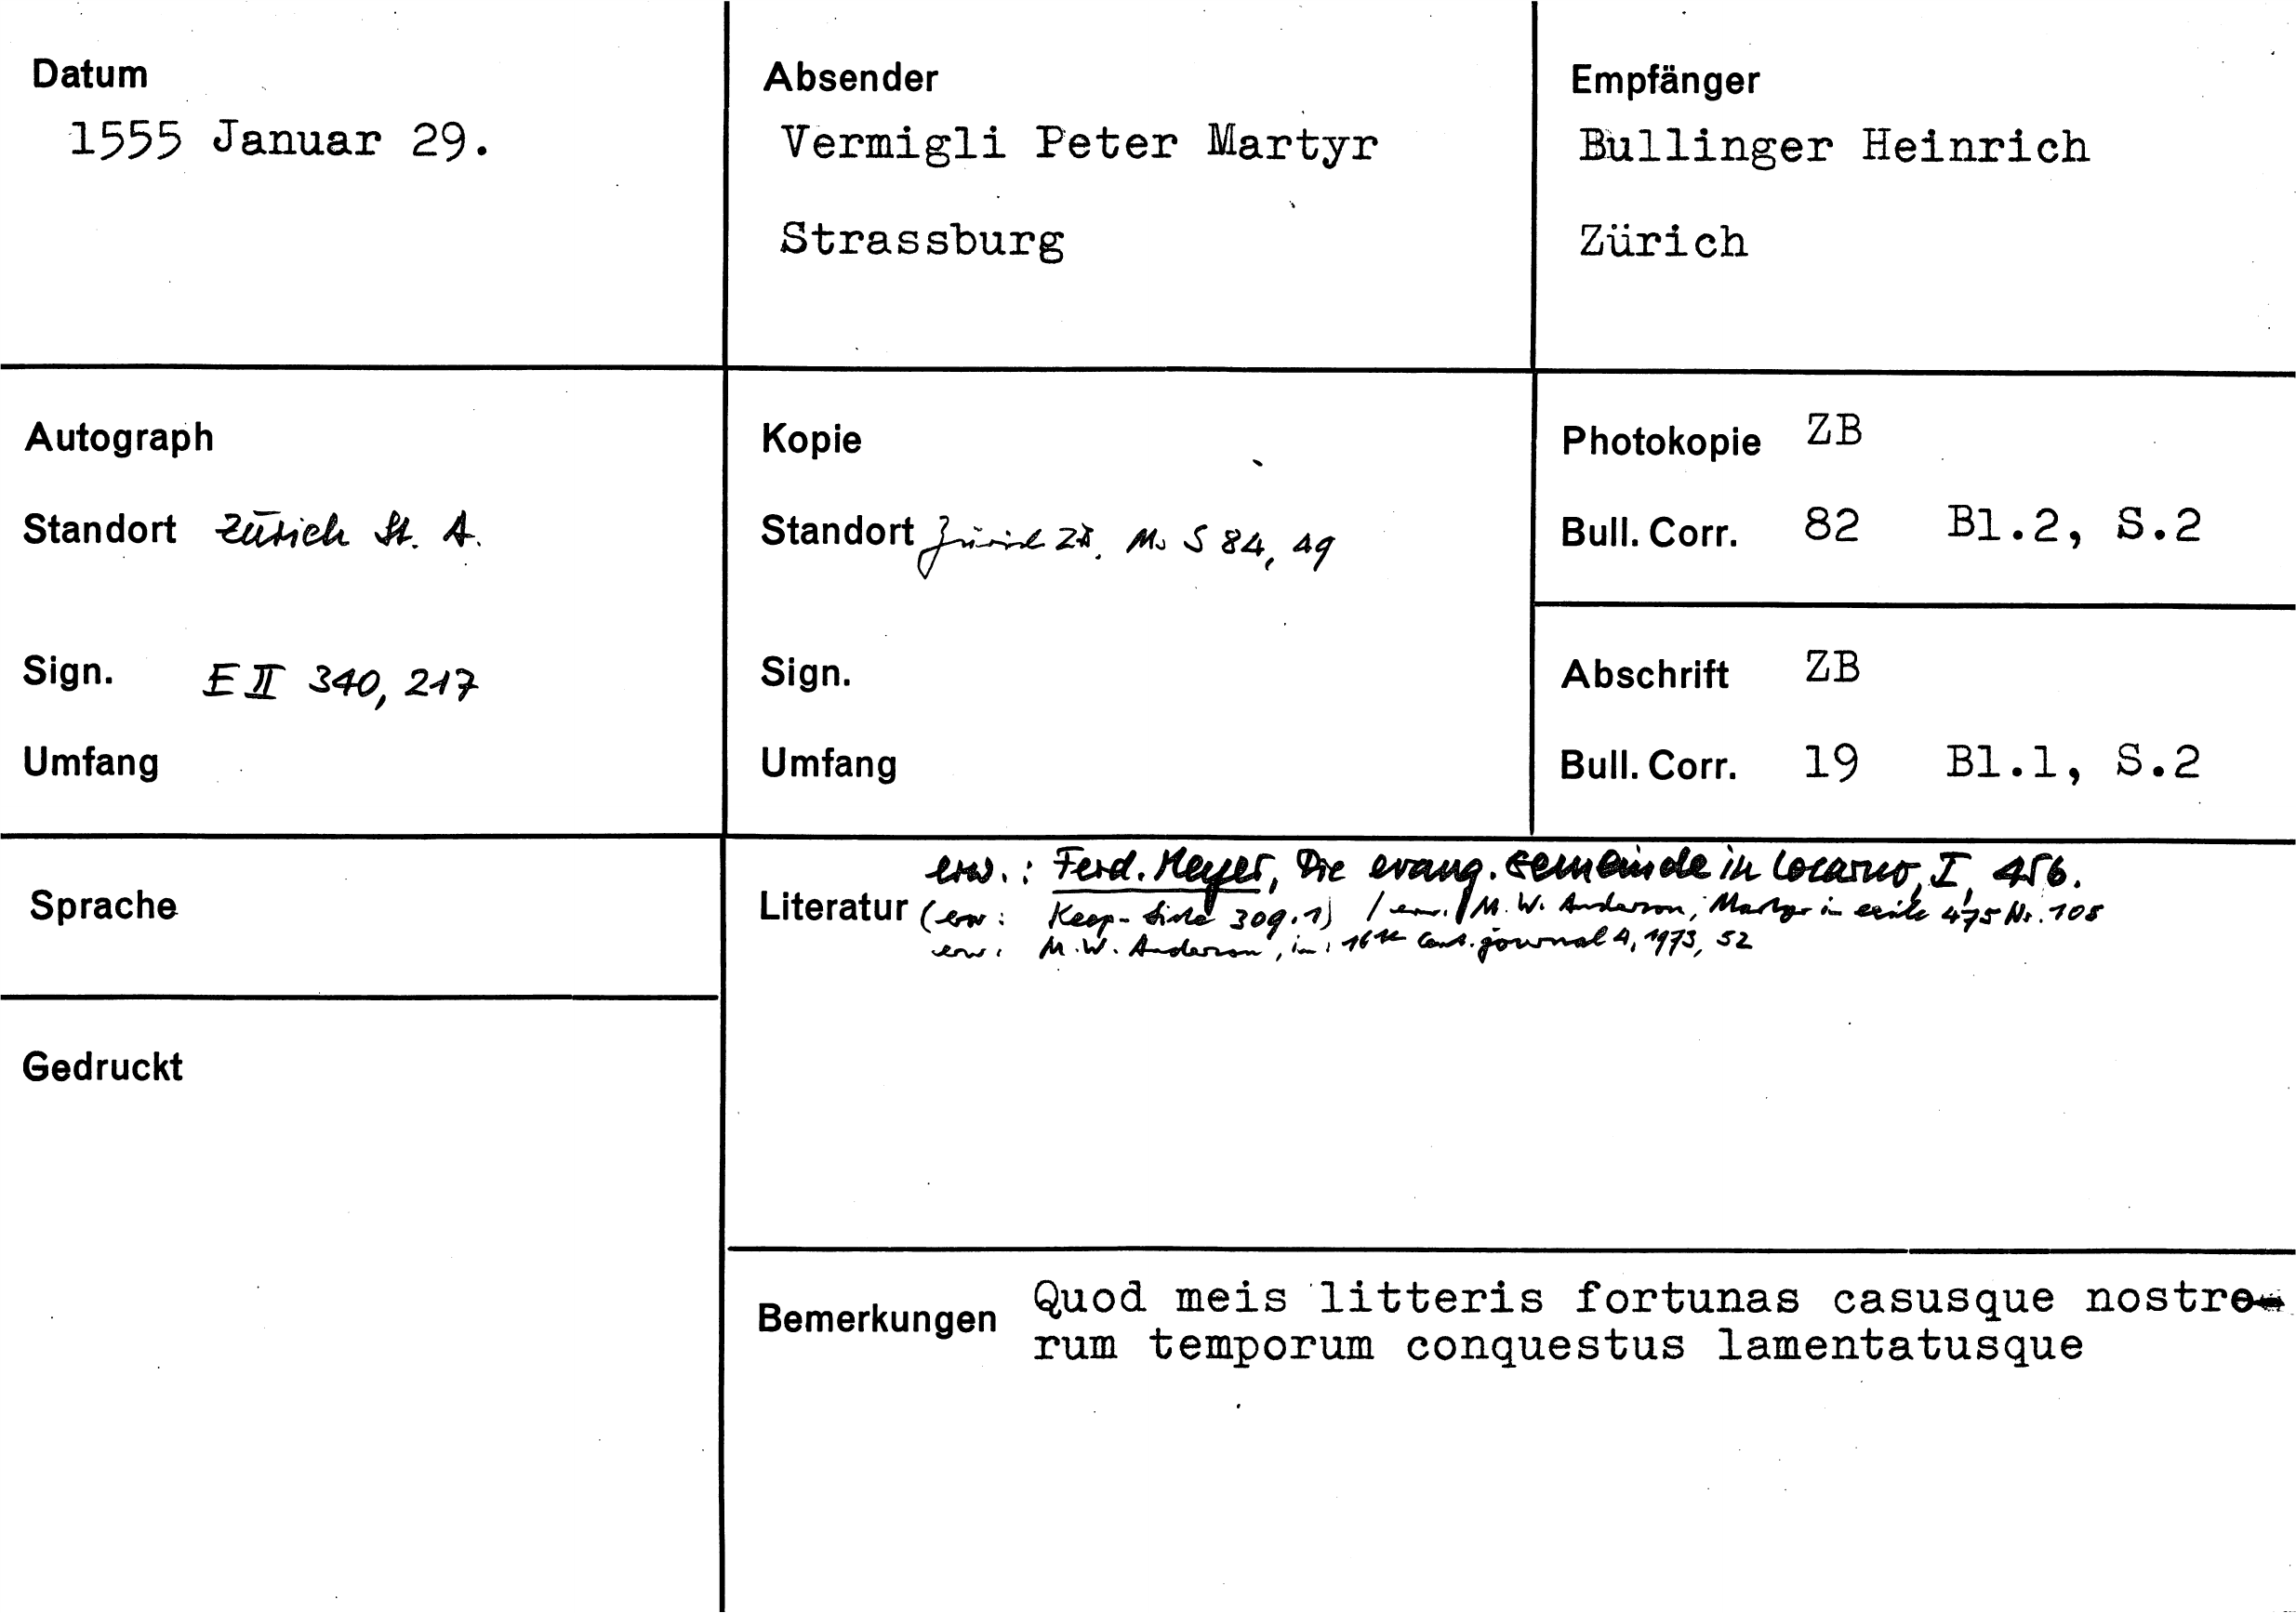 Datum
1555 Januar 29.
Absender
Vermigli Peter Martyr
Strassburg
Empfänger
Bullinger Heinrich
Zürich
Autograph
Standort Zürich St. A.
Sign. E II 340, 217
Umfang
Kopie
Standort Zürich ZB, Ms S 84, 49
Sign.
Umfang
Photokopie ZB
Bull. Corr. 82 Bl.2, S.2
Abschrift ZB
Bull. Corr. 19 Bl.1, S.2
Sprache
Gedruckt
erw.: Ferd. Meyer, Die evang. Gemeinde in Locarno, I, 456.
Literatur (erw: 309.1) / erw. / M. W. Anderson, Martyr in exile 475 Nr. 108
erw: M.W. Anderson, in: 16th Cent. journal 4, 1973, 52
Bemerkungen
Quod meis litteris fortunas casusque nostro-
rum temporum conquestus lamentatusque